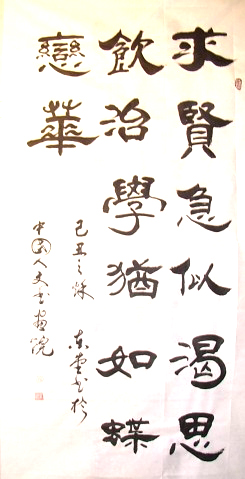 求賢急似渴思
飲治學猶如蝶
戀華
己丑之秋 東堂书於
中国人文书画院